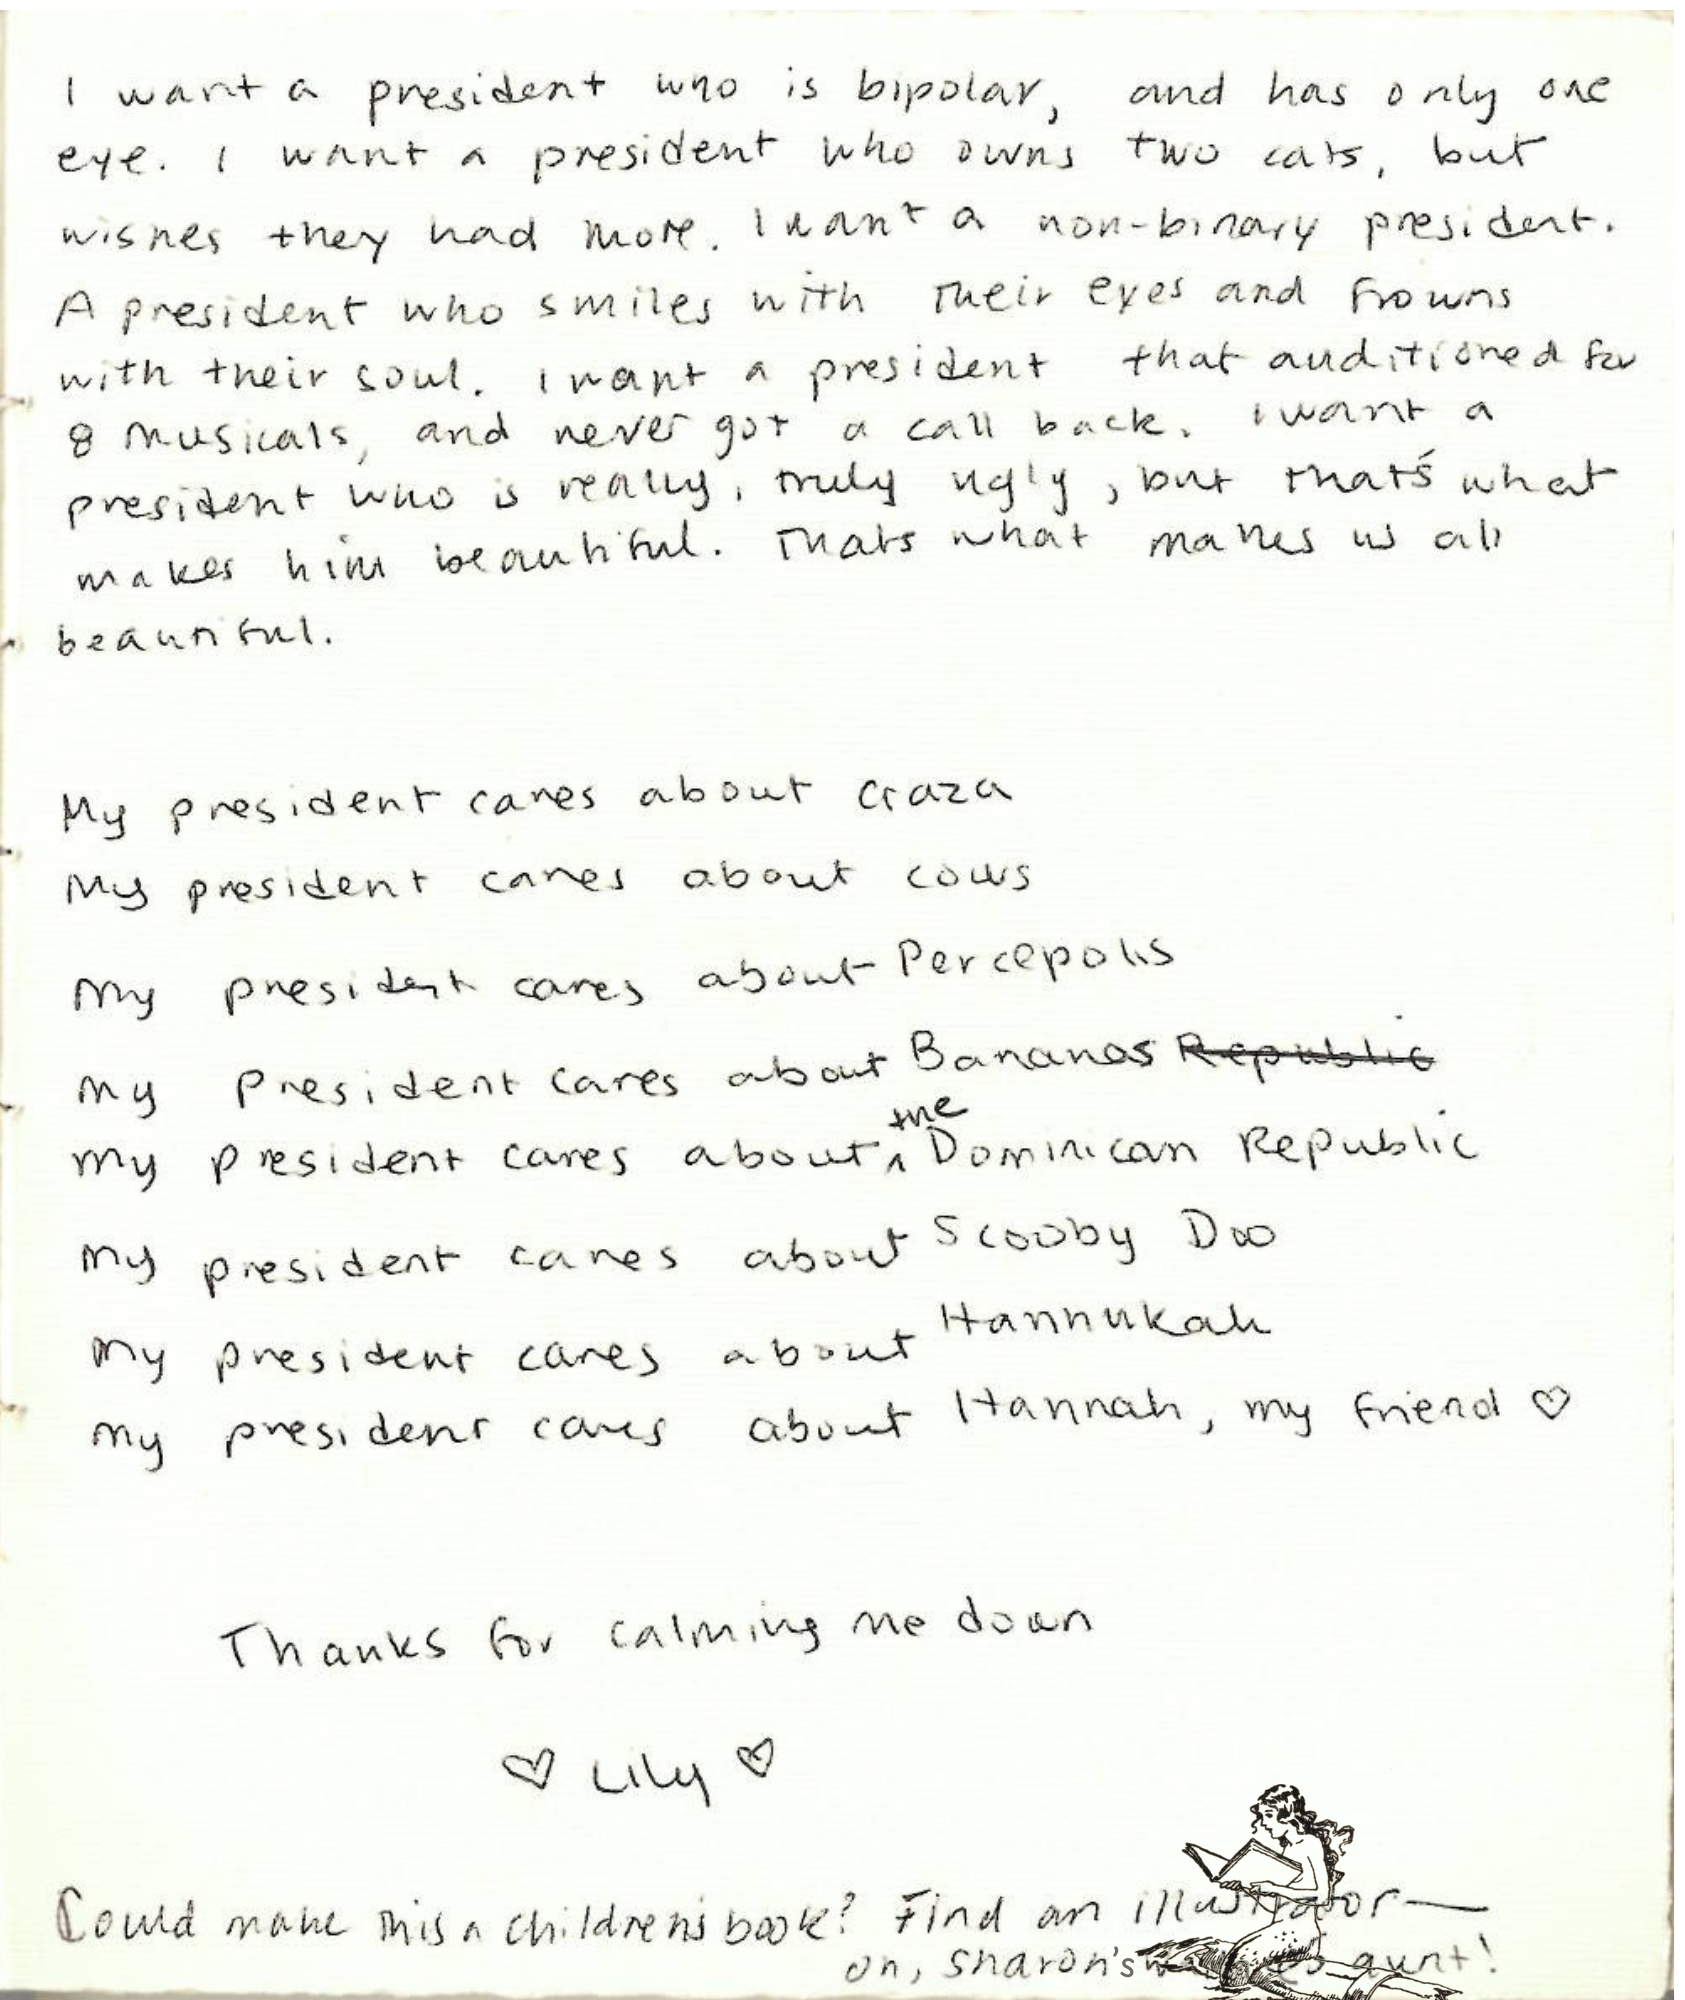 I want a president who is bipolar, and has only one
eye. I want a president who owns two cats, but
wishes they had more. I want a non-binary president.
A president who smiles with their eyes and frowns
with their soul. I want a president that auditioned for
8 musicals, and never got a call back. I want a
president who is really, truly ugly, but that's what
makes him beautiful. Thats what makes us all
beautiful.
My president cares about Gaza
My president cares about cows
My president cares about Percepolis
My President cares about Bananas Republic
My president cares about the Dominican Republic
My president cares about Scooby Doo
My president cares about Hannukah
My president cares about Hannah, my friend ♡
Thanks for calming me down
♡ Lily ♡
Could make this a children's book? Find an illustrator—
oh, Sharon's aunt!